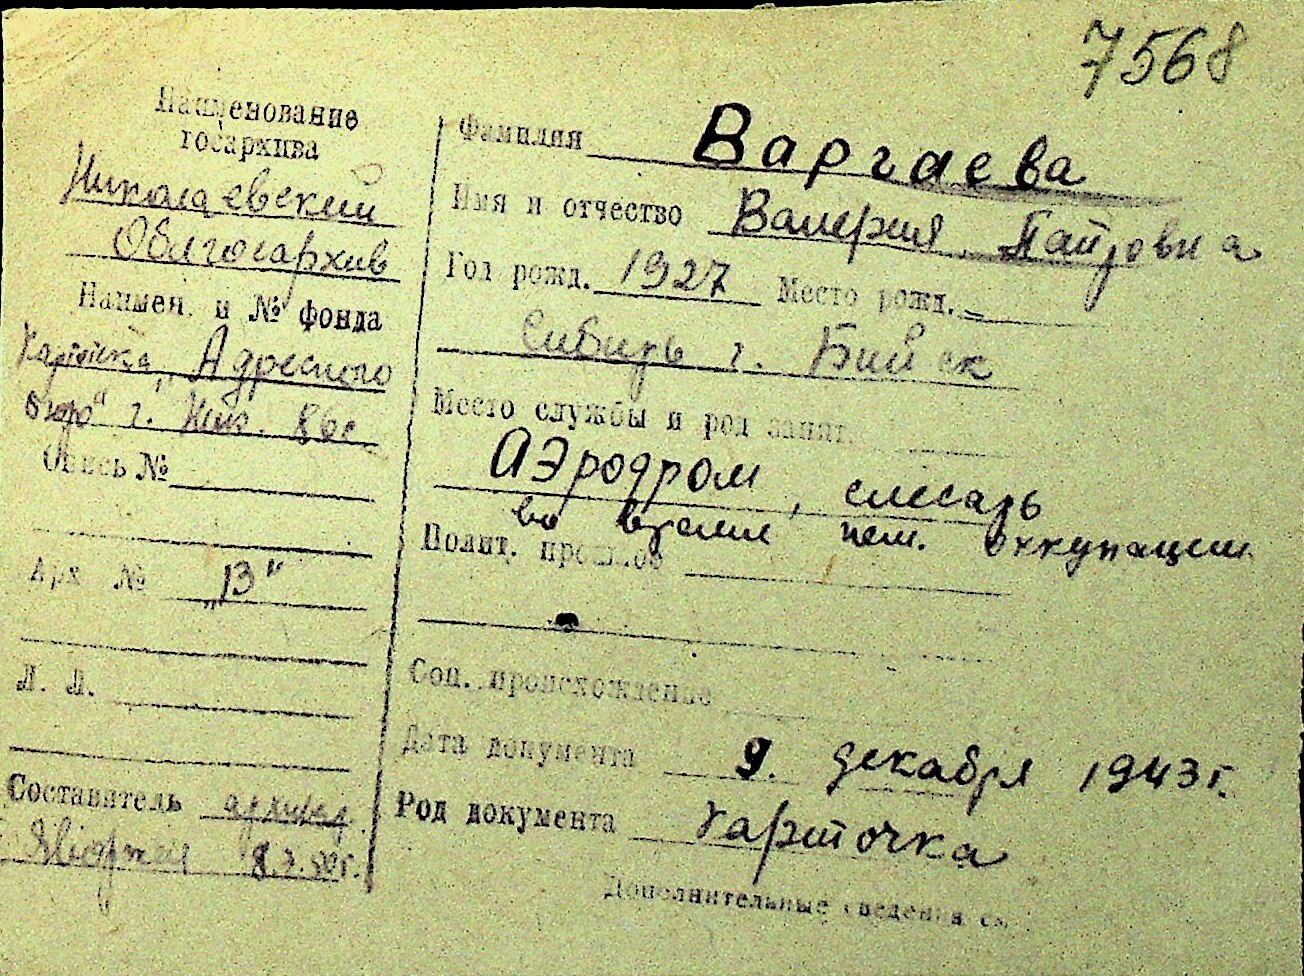 7568
Наименование
госархива
Николаевский
Облгосархив
Наимен. и № фонда
Картотека „Адресного
бюро" г.
Опись №
Арх №  „В"
Л. Л.
Составитель архивар.
Фамилия Варгаева
Имя и отчество Валерия
Год рожд. 1927 Место рожд.
Сибирь г. Бийск
Место службы и род занят.
Аэродром, слесарь
во время нем. оккупации
Полит. прошлое
Соц. происхождение
Дата документа 9. декабря 1943 г.
Род документа карточка
Дополнительные сведения см